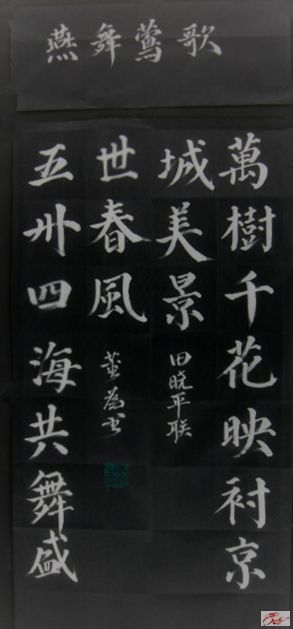 燕舞鶯歌
萬樹千花映衬京
城美景
田晓平联
五州四海共舞盛
世春風
董為书